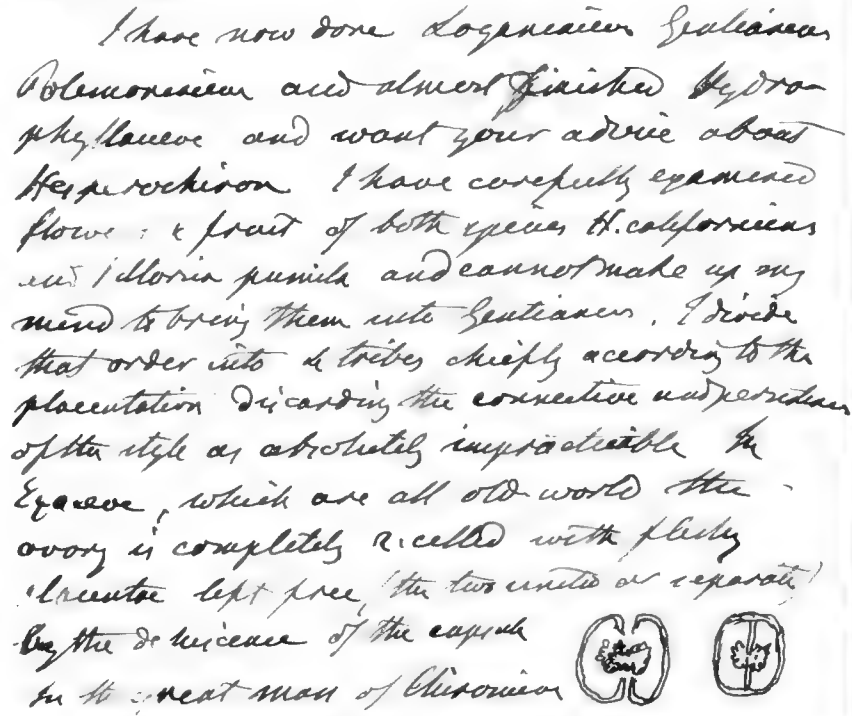 I have now done Loganiaceae Gentianeae
Polemoniaceae and almost finished Hydro-
phyllaceae and want your advice about
Hesperochiron I have carefully examined
flowers & fruit of both species H. californicus
and Villarsia pumila and cannot make up my
mind to bring them into Gentianeae. I divide
that order into 4 tribes chiefly according to the
placentation discarding the connective and persistence
of the style as absolutely impracticable In
Exaceae, which are all old-world the
ovary is completely 2-celled with fleshy
placentae left free (the two united or separate)
by the dehiscence of the capsule
In the great mass of Chironieae